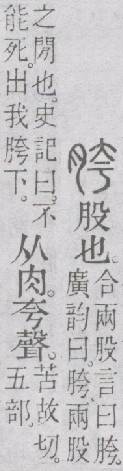 胯股也。合兩股言曰胯。廣韵曰。胯、兩股
之閒也。史記曰。不能死。出我胯下。从肉。夸聲。苦故切。五部。